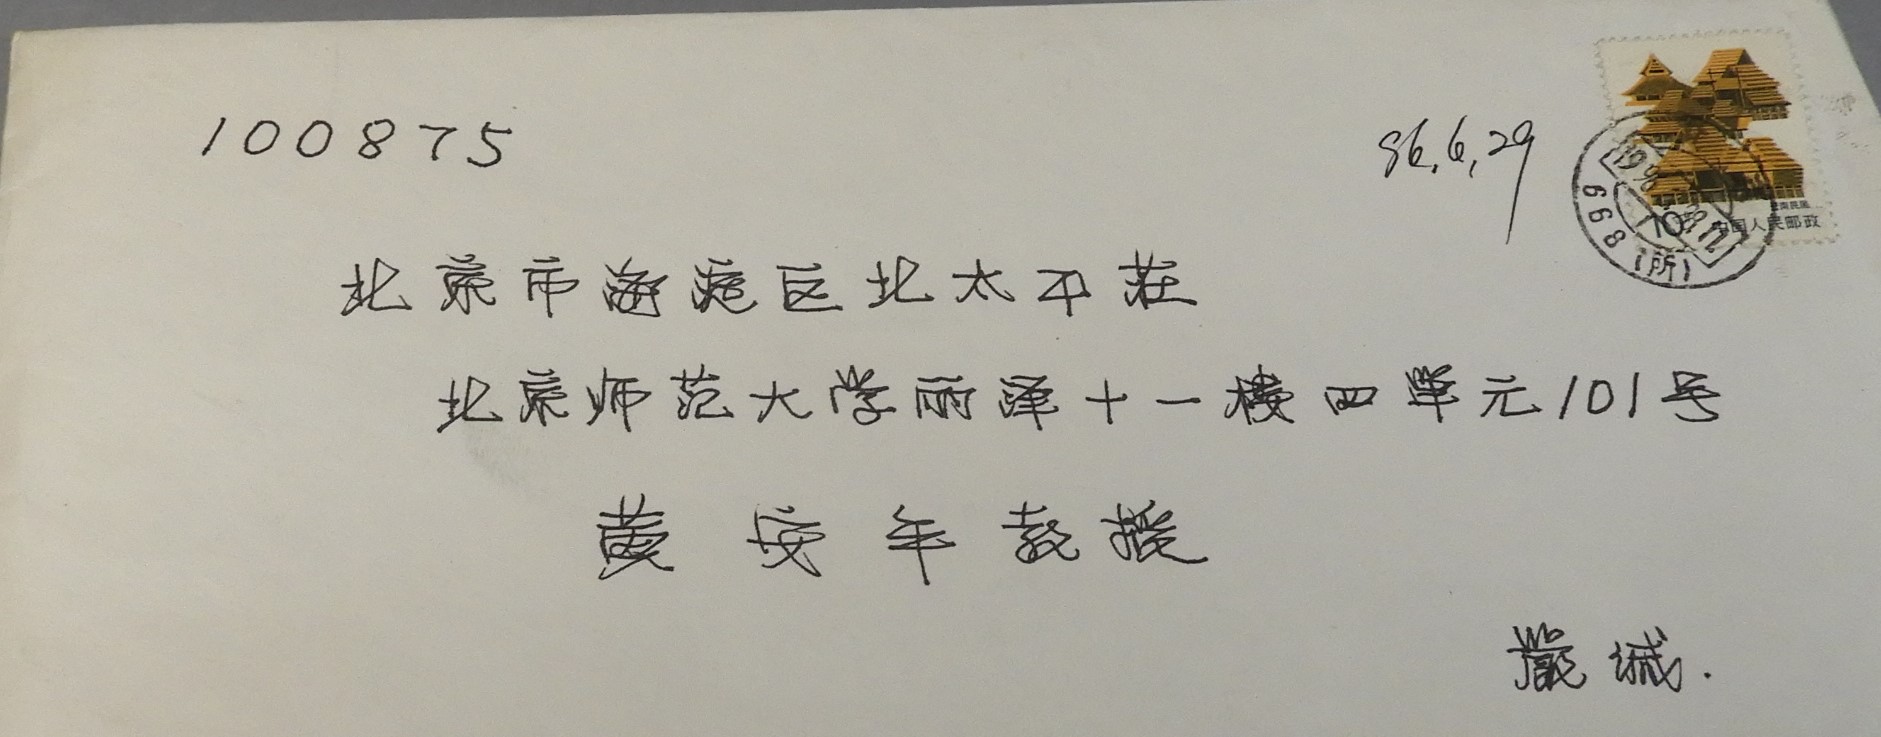 100875
86.6.29
北京市海淀区北太平莊
北京师范大学丽泽十一楼四單元101号
黄安年教授
嚴诚.
10 中国人民邮政
668
(所)